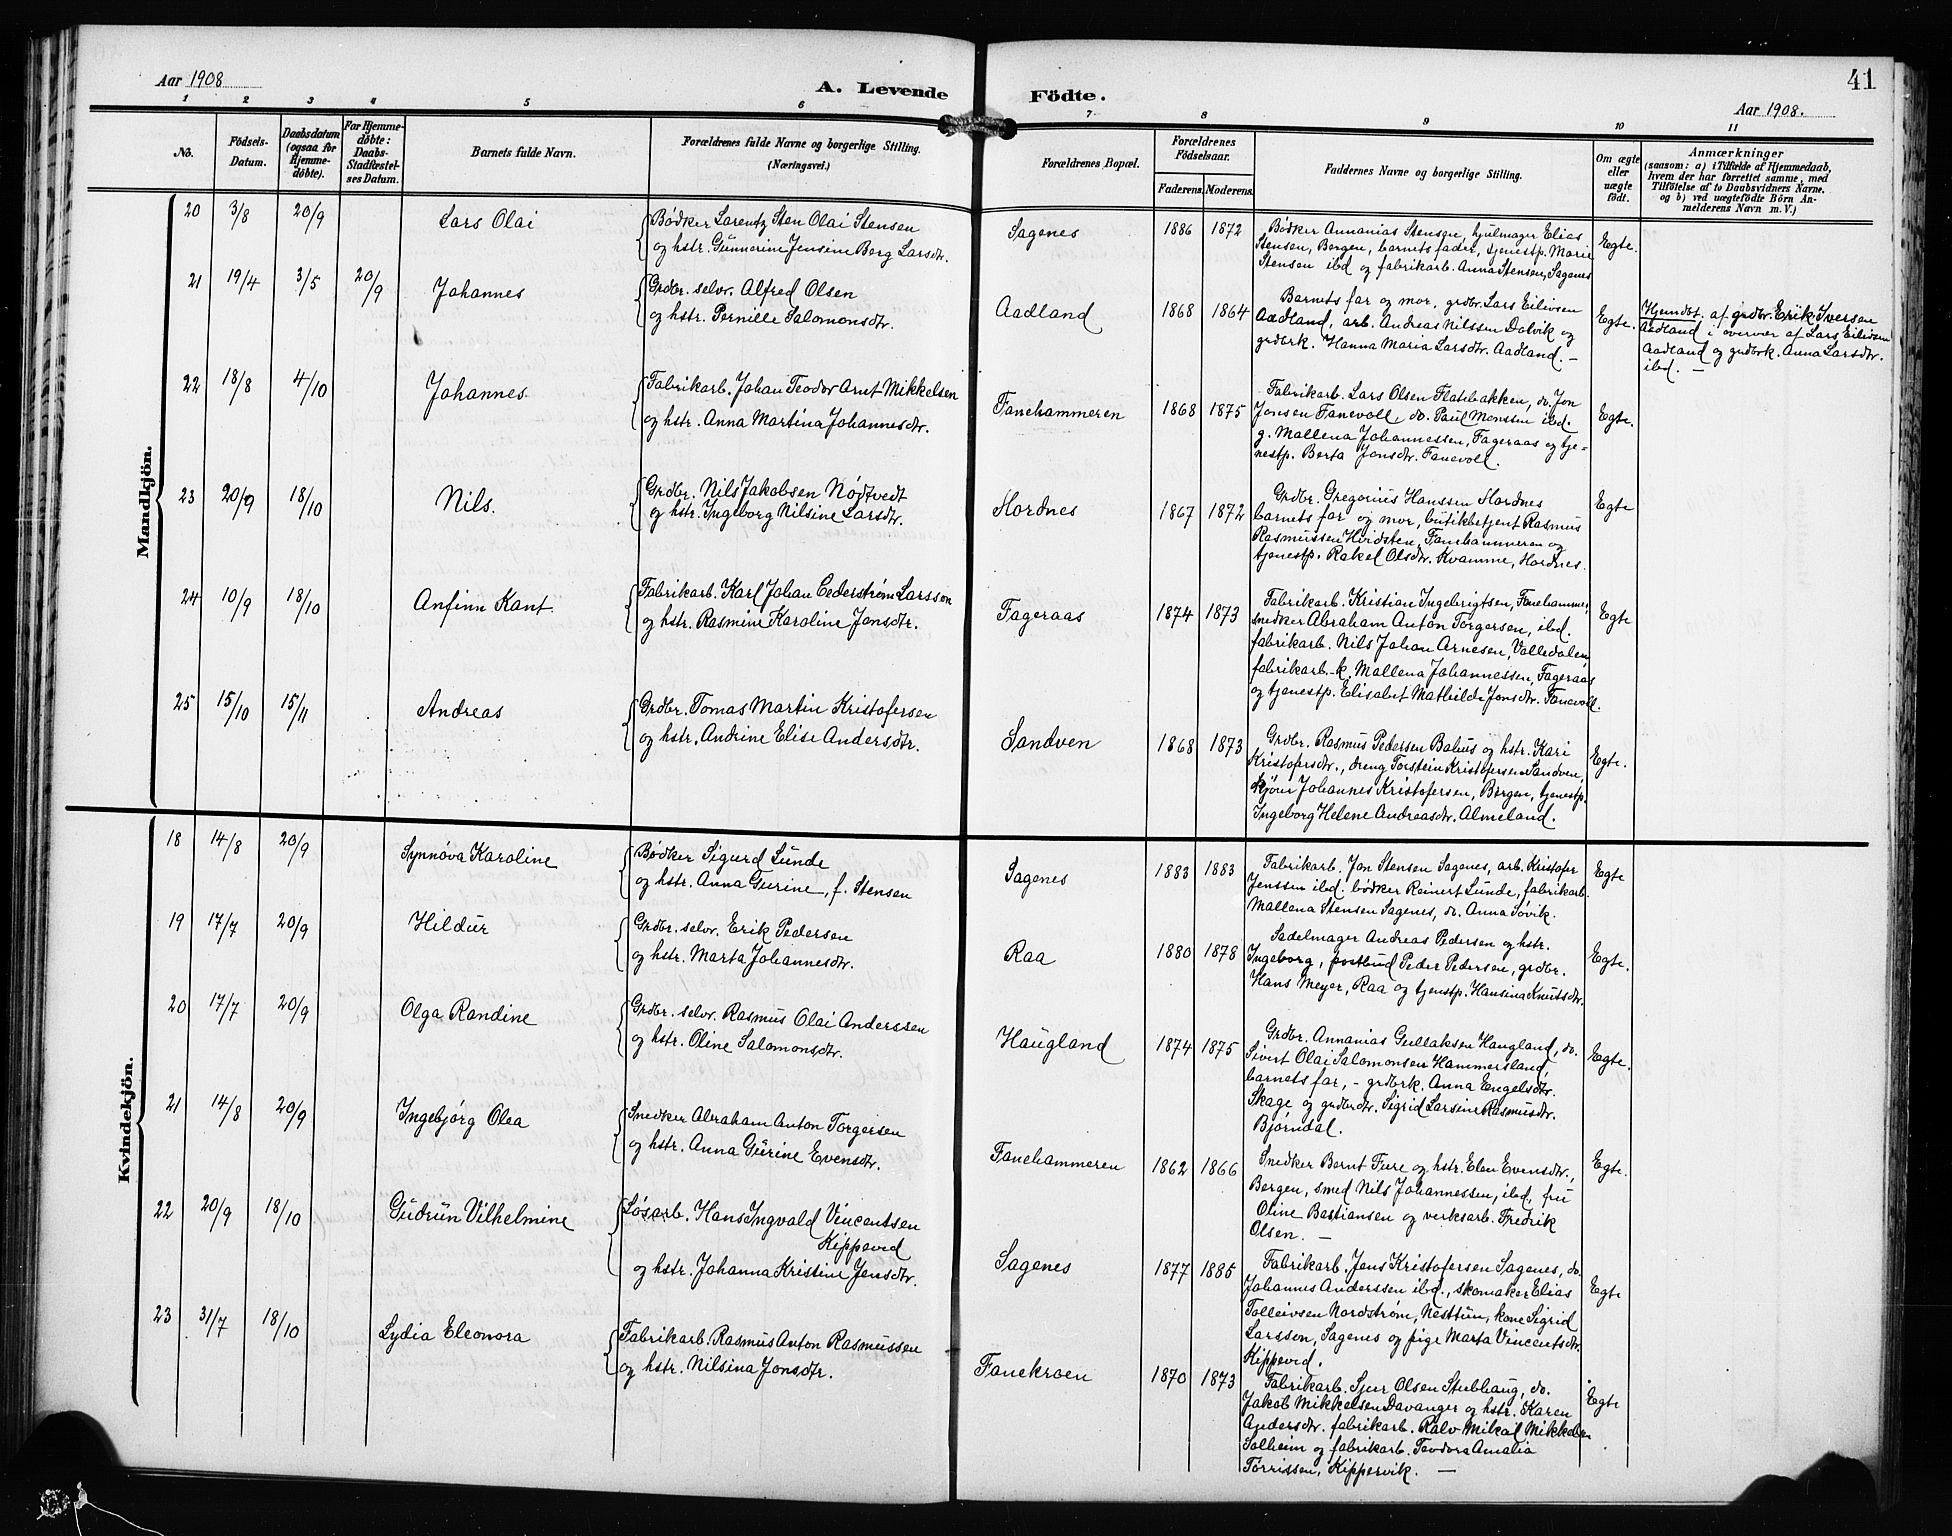 Aar 1908
A. Levende Födte.
41
Aar 1908.
1 2 3 4 5 6 7 8 9 10 11
No.
Födsels-Datum.
Daabsdatum (ogsaa for Hjemme-döbte).
For Hjemme-döbte: Daabs-Stadfæstel-ses Datum.
Barnets fulde Navn.
Forældrenes fulde Navne og borgerlige Stilling. (Næringsvei.)
Forældrenes Bopæl.
Forældrenes Födselsaar.
Faderens. Moderens.
Faddernes Navne og borgerlige Stilling.
Om ægte eller uægte födt.
Anmærkninger
(saasom: a) i Tilfælde af Hjemmedaab,
hvem der har forrettet samme, med
Tilföielse af to Daabsvidners Navne.
og b) ved uægtefödte Börn An-
melderens Navn m. V.)
Mandkjön.
20 3/8 20/9 Lars Olai
Bødker Lorentz Sten Olai Stensen
og hstr. Gunnerine Jensine Berg Larsdtr.
Sagenes 1886 1872
Bødker Annanias Stensen, hjulmager Elias
Stensen, Bergen, barnets fader, tjenestp. Marie
Stensen ibd og fabrikarb. Anna Stensen, Sagenes
Egte.
21 19/4 3/5 20/9 Johannes
Grdbr. selv. Alfred Olsen
og hstr. Pernille Salomonsdtr.
Aadland 1868 1864
Barnets far og mor, grdbr. Lars Eilivsen
Aadland, arb. Andreas Nilssen Dalvik og
grdbrk. Hanna Maria Larsdtr. Aadland. –
Egte.
Hjemdbt. af grdbr. Erik Iversen
Aadland i overvær af Lars Eilivsen
Aadland og grdbrk. Anna Larsdtr.
ibd. –
22 18/8 4/10 Johannes.
Fabrikarb. Johan Teodor Arnt Mikkelsen
og hstr. Anna Martina Johannesdtr.
Fanehammeren 1868 1875
Fabrikarb. Lars Olsen Flatebakken, do. Jon
Jonsen Fanevoll, do. Paul Monssen ibd.
g. Mallena Johannessen, Fageraas og tje-
nestp. Berta Jonsdtr. Fanevoll.
Egte.
23 20/9 18/10 Nils.
Grdbr. Nils Jakobsen Nødtvedt
og hstr. Ingeborg Nilsine Larsdtr.
Hordnes 1867 1872
Grdbr. Gregorius Hanssen Hordnes
barnets far og mor, butikbetjent Rasmus
Rasmussen Hvidsten, Fanehammeren og
tjenestp. Rakel Olsdtr. Kvamme, Hordnes.
Egte
24 10/9 18/10 Anfinn Kant.
Fabrikarb. Karl Johan Cederstrøm Larsson
og hstr. Rasmine Karoline Jonsdtr.
Fageraas 1874 1873
Fabrikarb. Kristian Ingebrigtsen, Fanehammer,
snedker Abraham Anton Torgersen, ibd.
fabrikarb. Nils Johan Arnesen, Valledalen
fabrikarb.-k. Mallena Johannessen, Fageraas
og tjenestp. Elisabet Mathilde Jonsdtr. Fanevoll.
Egte
25 15/10 15/11 Andreas
Grdbr. Tomas Martin Kristofersen
og hstr. Andrine Elise Andersdtr.
Sandven 1868 1873
Grdbr. Rasmus Pedersen Bahus og hstr. Kari
Kristofersdtr., dreng Torstein Kristofersen Sandven,
kjører Johannes Kristofersen, Bergen, tjenestp.
Ingeborg Helene Andreasdtr. Almeland.
Egte.
Kvindekjön.
18 14/8 20/9 Synnøva Karoline
Bødker Sigurd Lunde
og hstr. Anna Gurine, f. Stensen
Sagenes 1883 1883
Fabrikarb. Jon Stensen Sagenes, arb. Kristofer
Jenssen ibd. bødker Reinert Lunde, fabrikarb.
Mallena Stensen Sagenes, do. Anna Søvik.
Egte
19 17/7 20/9 Hildur
Grdbr. selv. Erik Pedersen
og hstr. Marta Johannesdtr.
Raa 1880 1878
Sadelmager Andreas Pedersen og hstr.
Ingeborg, postbud Peder Pedersen, grdbr.
Hans Meyer, Raa og tjenstp. Hansina Knutsdtr.
Egte.
20 17/7 20/9 Olga Randine
Grdbr. selv. Rasmus Olai Anderssen
og hstr. Oline Salomonsdtr.
Haugland 1874 1875
Grdbr. Annanias Gullaksen Haugland, do.
Sivert Olai Salomonsen Hammersland,
barnets far, – grdbrk. Anna Engelsdtr.
Skage og grdbrdtr. Sigrid Larsine Rasmusdtr.
Bjørndal.
Egte.
21 14/8 20/9 Ingebjørg Olea
Snedker Abraham Anton Torgersen
og hstr. Anna Gurine Evensdtr.
Fanehammeren 1862 1866
Snedker Bernt Fure og hstr. Elen Evensdtr.,
Bergen, smed Nils Johannessen, ibd, fru
Oline Bastiansen og verksarb. Fredrik
Olsen. –
Egte.
22 20/9 18/10 Gudrun Vilhelmine
Løsarb. Hans Ingvald Vincentsen
Kippeved
og hstr. Johanna Kristine Jensdtr.
Sagenes 1877 1885
Fabrikarb. Jens Kristofersen Sagenes, do.
Johannes Anderssen ibd., skomaker Elias
Tolleivsen Nordstrøm, Nesttun, kone Sigrid
Larsson, Sagenes og pige Marta Vincentsdtr.
Kippeved.
Egte
23 31/7 18/10 Lydia Eleonora
Fabrikarb. Rasmus Anton Rasmussen
og hstr. Nilsina Jonsdtr.
Fanekroen 1870 1873
Fabrikarb. Sjur Olsen Stubhaug, do.
Jakob Mikkelsen Davanger og hstr. Karen
Andersdtr. fabrikarb. Ralv Mikal Mikkelsen
Solheim og fabrikarb. Teodora Amalia
Torrissen, Kippervik. –
Egte